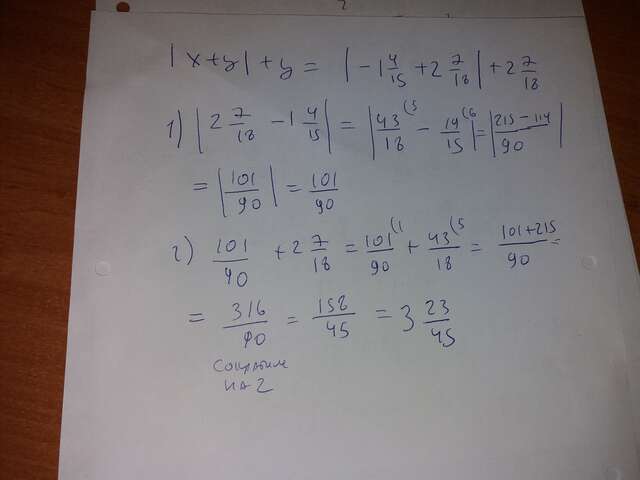 |x+y|+y = |-1 4/15 + 2 7/18| + 2 7/18
1) |2 7/18 - 1 4/15| = |43/18 (5 - 19/15 (6| = |215-114/90|
= |101/90| = 101/90
2) 101/90 + 2 7/18 = 101/90 (1 + 43/18 (5 = 101+215/90 =
= 316/90 = 158/45 = 3 23/45
на 2